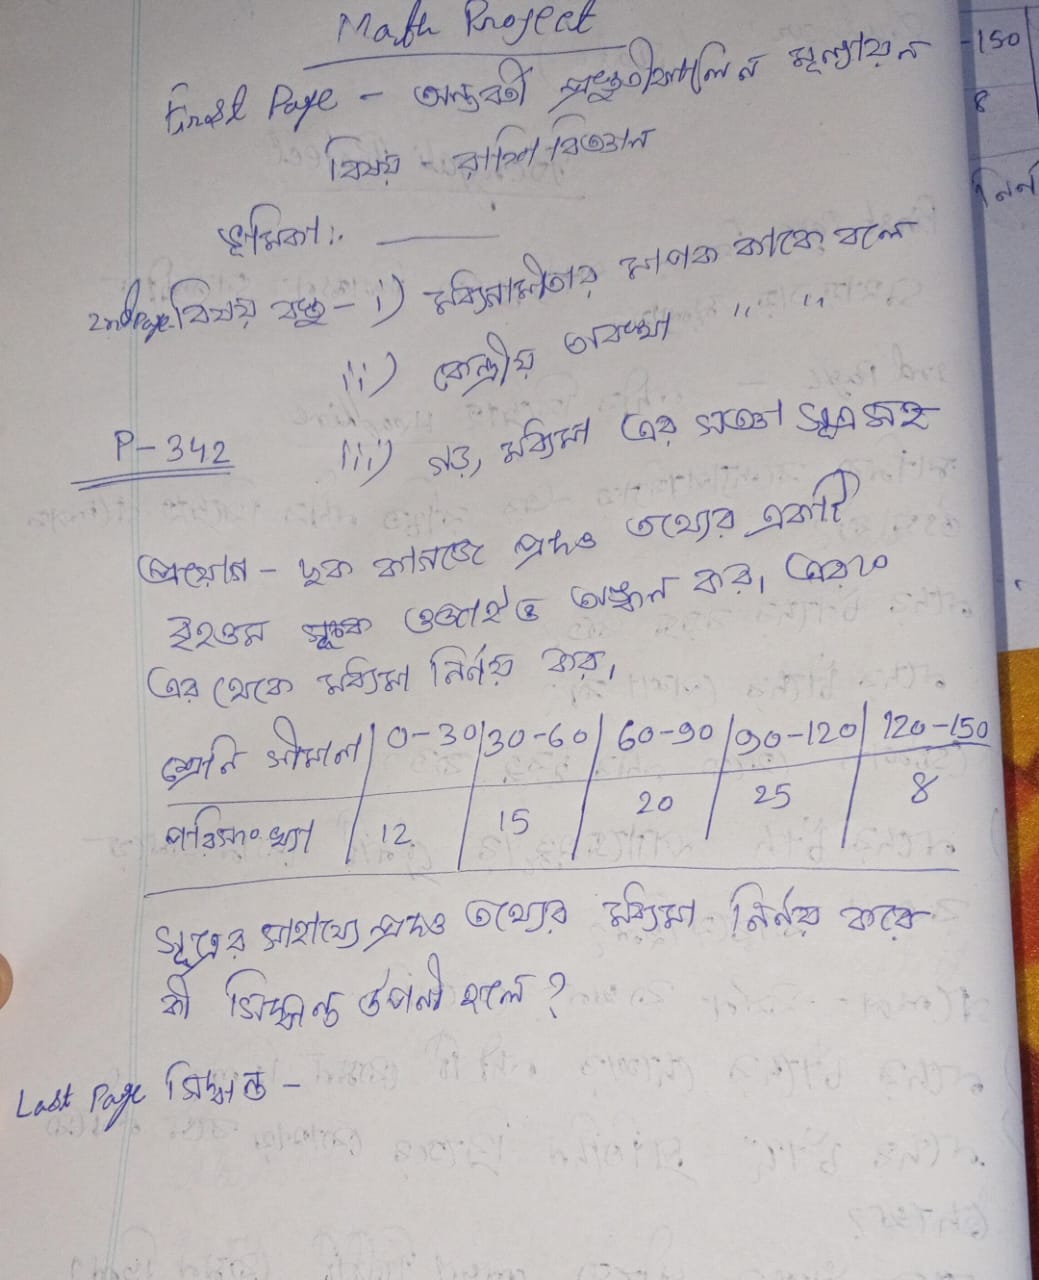 Math Project
First Page - অন্তবর্তী প্রস্তুতীকালিন মূল্যায়ন
বিষয় - রাশি বিজ্ঞান
ভূমিকা :.
2nd Page বিষয় বস্তু - i) মধ্যগামীতার মাপক কাকে বলে
ii) কেন্দ্রীয় অবস্থা " "
P-342
iii) গড়, মধ্যমা এর সংজ্ঞা সূত্র সহ
প্রয়োগ - ছক কাগজে প্রদত্ত তথ্যের একটি
বৃহত্তম সূচক ওজাইভ অঙ্কন কর, এবং
এর থেকে মধ্যমা নির্ণয় কর,
শ্রেনি সীমানা | 0-30 | 30-60 | 60-90 | 90-120 | 120-150
পরিসংখ্যা | 12 | 15 | 20 | 25 | 8
সূত্রের সাহায্যে প্রদত্ত তথ্যের মধ্যমা নির্নয় করে
কী সিদ্ধান্তে উপনীত হলে ?
Last Page সিদ্ধান্ত -
-150
8